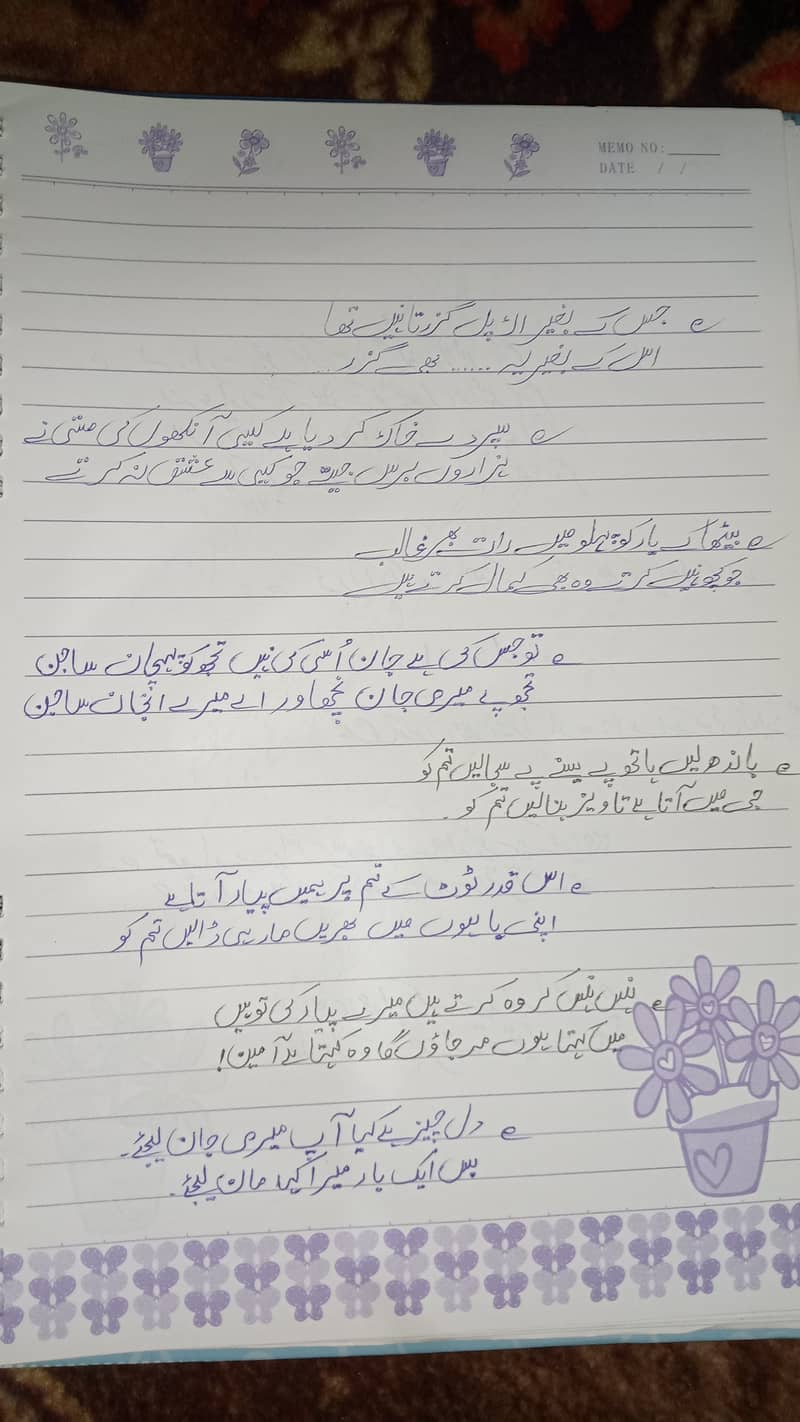 MEMO NO:
DATE / /
جس کے بغیر اک پل گزرتا نہیں تھا
اس کے بغیر یہ ...... بھی گزر ...
سپردے خاک کر دیا ہے کیسی آنکھوں کی مستی نے
ہزاروں برس جیتے جو کیسی سے عشق نہ کرتے
بیٹھا کے یار کو پہلو میں رات بھر غالب
جو کچھ نہیں کرتے وہ بھی کمال کرتے ہیں
تو جس کی ہے جان اُسی کی نہیں تجھ کو پہچان ساجن
تجھ پے میری جان نچھاور اے میرے انجان ساجن
باندھ لیں ہاتھ پے سینے پے سجا لیں تم کو
جی میں آتا ہے تاویز بنا لیں تم کو.
اس قدر ٹوٹ کے تم پر ہمیں پیار آتا ہے
اپنی باہوں میں بھریں مار ہی ڈالیں تم کو
ہنس ہنس کر وہ کرتے ہیں میرے پیار کی توہیں
میں کہتا ہوں مر جاؤں گا وہ کہتا ہے آمین!
دل چیز ہے کیا آپ میری جان لیجئے.
بس ایک بار میرا کہا مان لیجئے.